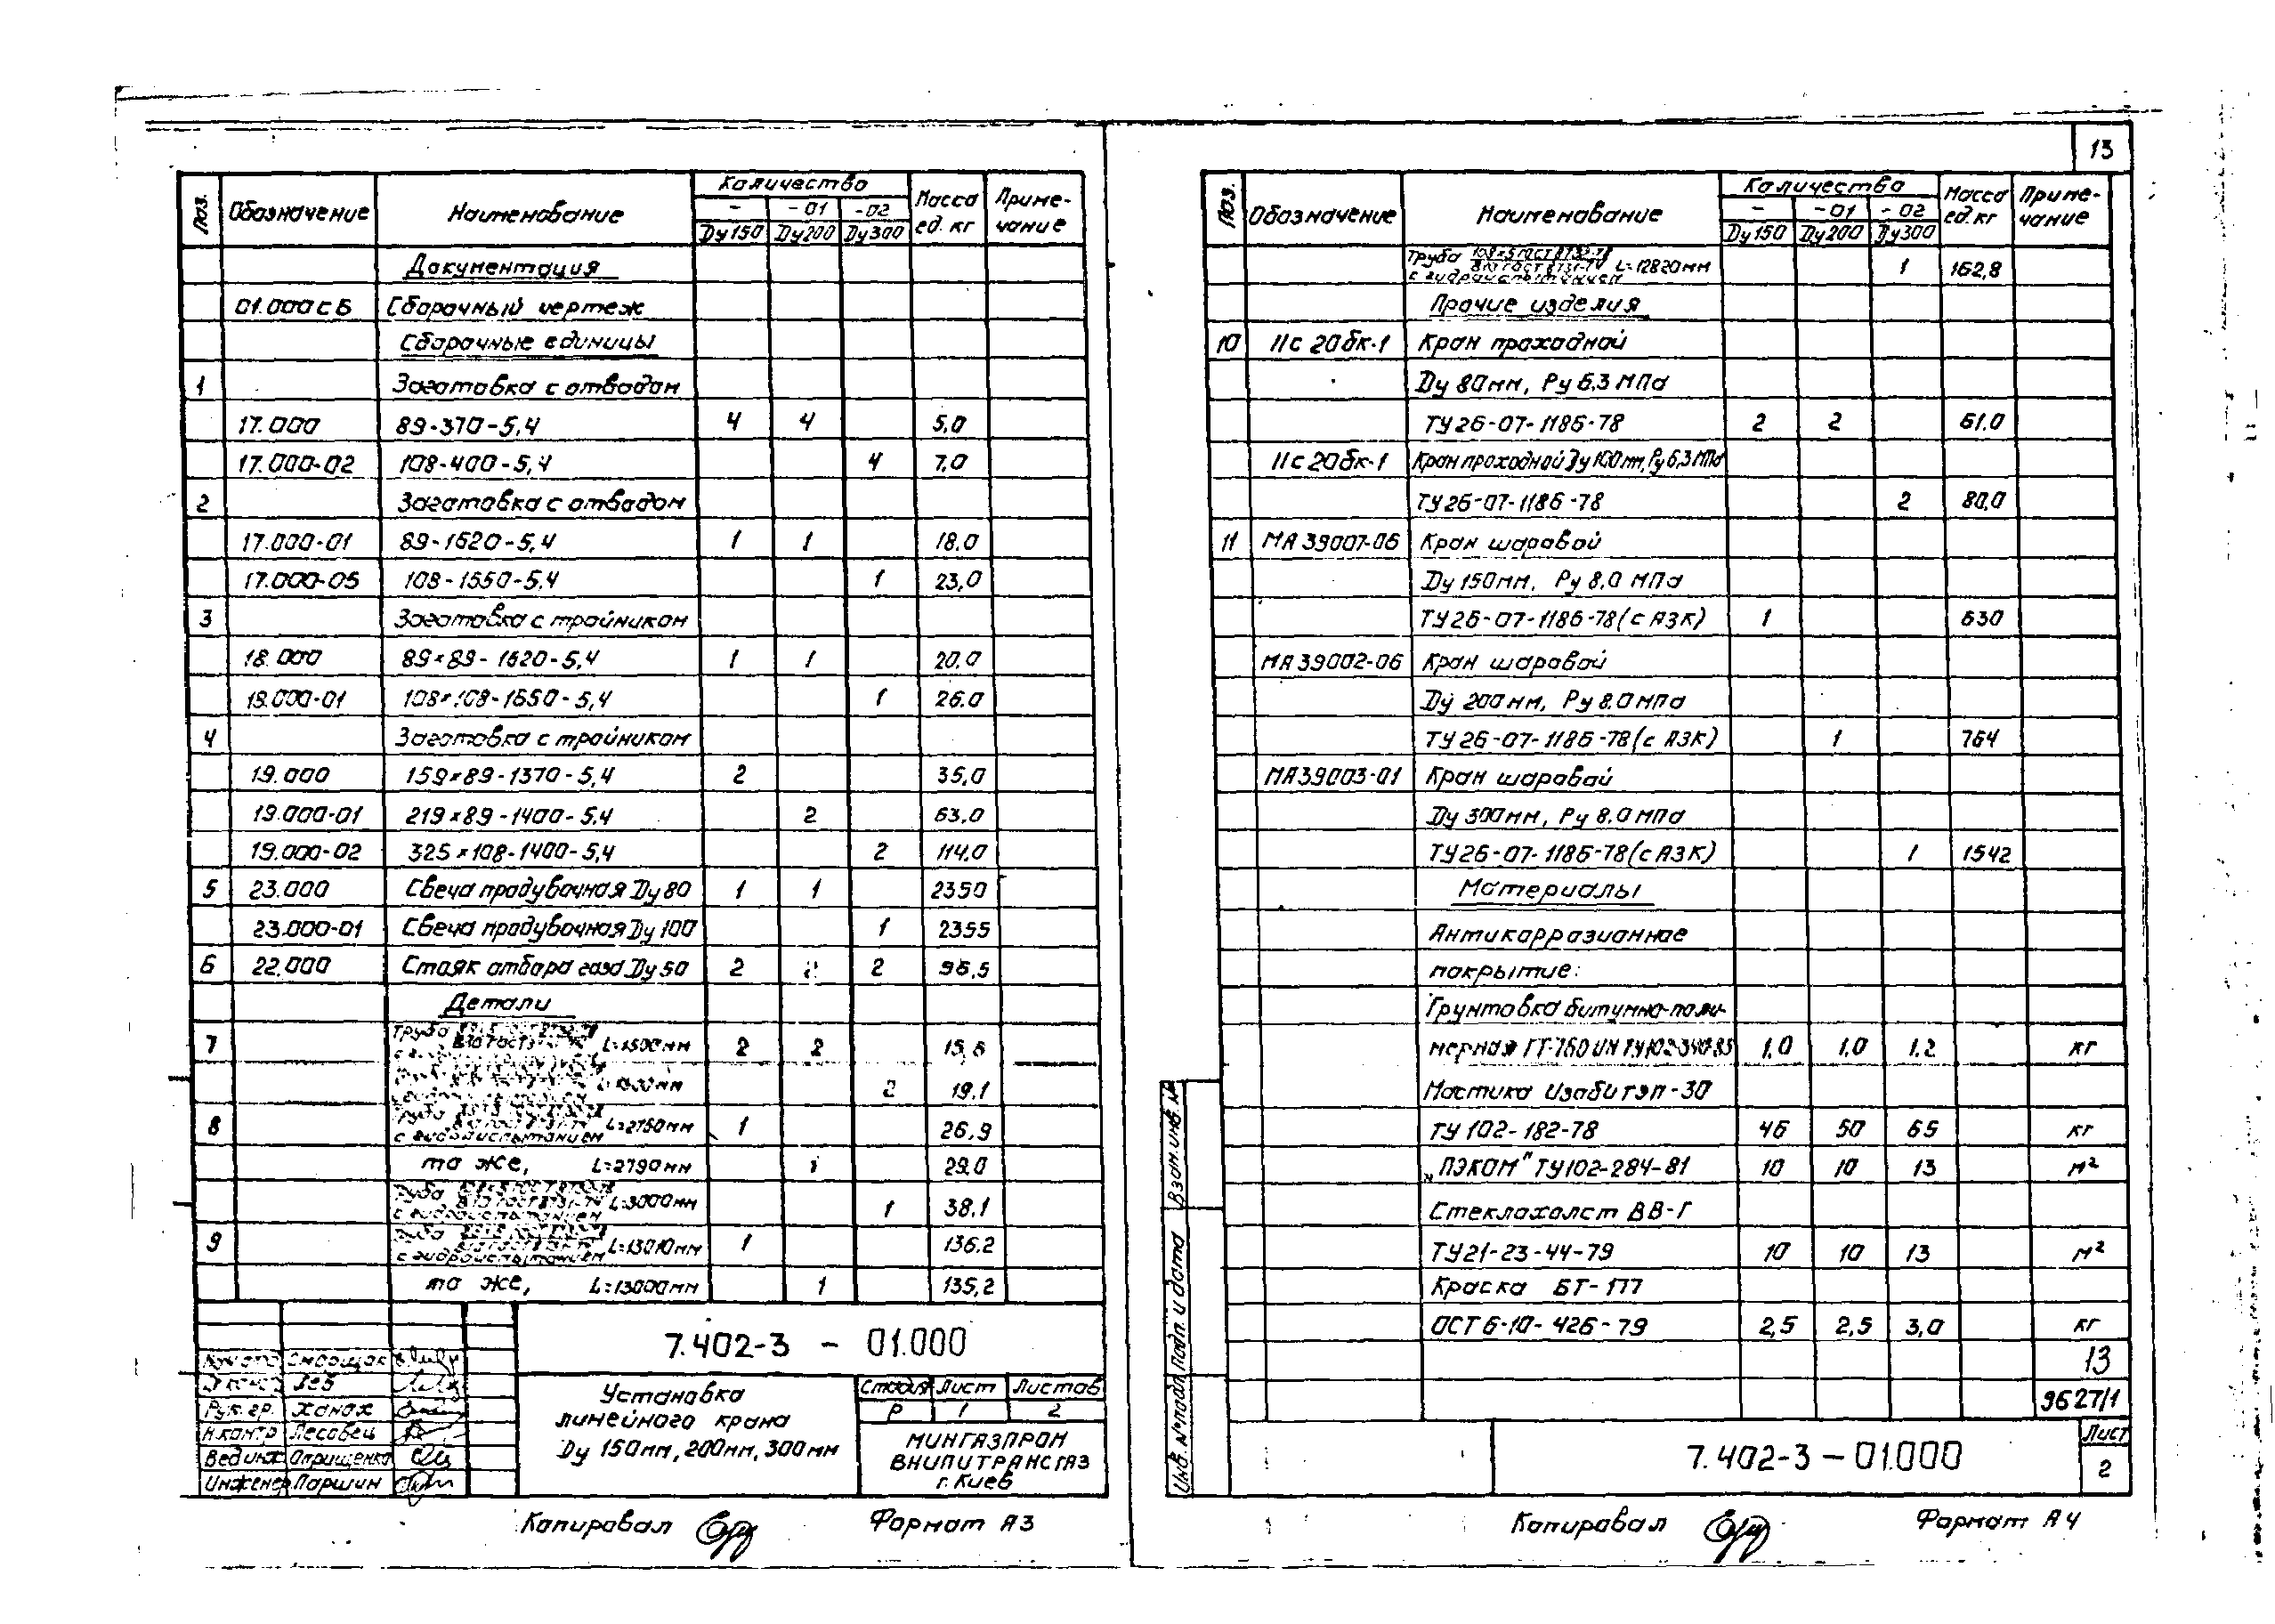 Поз. Обозначение Наименование Количество Масса ед. кг Приме- чание
- -01 -02
Ду150 Ду200 Ду300
Документация
01.000СБ Сборочный чертеж
Сборочные единицы
1 Заготовка с отводом
17.000 89-370-5,4 4 4 5,0
17.000-02 108-400-5,4 4 7,0
2 Заготовка с отводом
17.000-01 89-1620-5,4 1 1 18,0
17.000-05 108-1650-5,4 1 23,0
3 Заготовка с тройником
18.000 89×89-1620-5,4 1 1 20,0
18.000-01 108×108-1650-5,4 1 26,0
4 Заготовка с тройником
19.000 159×89-1370-5,4 2 35,0
19.000-01 219×89-1400-5,4 2 63,0
19.000-02 325×108-1400-5,4 2 114,0
5 23.000 Свеча продувочная Ду80 1 1 2350
23.000-01 Свеча продувочная Ду100 1 2355
6 22.000 Стояк отбора газа Ду50 2 2 2 96,5
Детали
7 Труба L=1500мм 2 2 15,6
2 19,1
8 Труба L=2750мм 1 26,9
с гидроиспытанием
то же, L=2790мм 1 29,0
Труба L=3000мм 1 38,1
с гидроиспытанием
9 Труба L=13010мм 1 136,2
с гидроиспытанием
то же, L=13000мм 1 135,2
7.402-3 - 01.000
Рук.гр. Ханах
Н.контр Лесовец
Вед.инж Оприщенко
Инженер Паршин
Установка
линейного крана
Ду 150мм, 200мм, 300мм
Стадия Лист Листов
Р 1 2
МИНГАЗПРОМ
ВНИПИТРАНСГАЗ
г. Киев
Копировал Формат А3
13
Поз. Обозначение Наименование Количество Масса ед. кг Приме- чание
- -01 -02
Ду150 Ду200 Ду300
Труба 108×5 ГОСТ 8732-78 L=12820мм 1 162,8
В10 ГОСТ 8731-74
с гидроиспытанием
Прочие изделия
10 11с 20бк-1 Кран проходной
Ду 80мм, Ру 6,3 МПа
ТУ26-07-1186-78 2 2 61,0
11с20бк-1 Кран проходной Ду100мм, Ру6,3МПа
ТУ26-07-1186-78 2 80,0
11 МА39007-06 Кран шаровой
Ду 150мм, Ру 8,0 МПа
ТУ26-07-1186-78(с АЗК) 1 630
МА39002-06 Кран шаровой
Ду 200мм, Ру 8,0МПа
ТУ26-07-1186-78(с АЗК) 1 764
МА39003-01 Кран шаровой
Ду 300мм, Ру 8,0МПа
ТУ26-07-1186-78(с АЗК) 1 1542
Материалы
Антикоррозионное
покрытие:
Грунтовка битумно-поли-
мерная ГТ-760 ИН ТУ102-340-83 1,0 1,0 1,2 кг
Мастика Изобитэп-30
ТУ 102-182-78 46 50 65 кг
„ПЭКОМ" ТУ102-284-81 10 10 13 м²
Стеклохолст ВВ-Г
ТУ21-23-44-79 10 10 13 м²
Краска БТ-177
ОСТ6-10-426-79 2,5 2,5 3,0 кг
13
9627/1
Инв. №подл. Подп. и дата Взам.инв.№
7.402-3-01.000
Лист
2
Копировал Формат А4